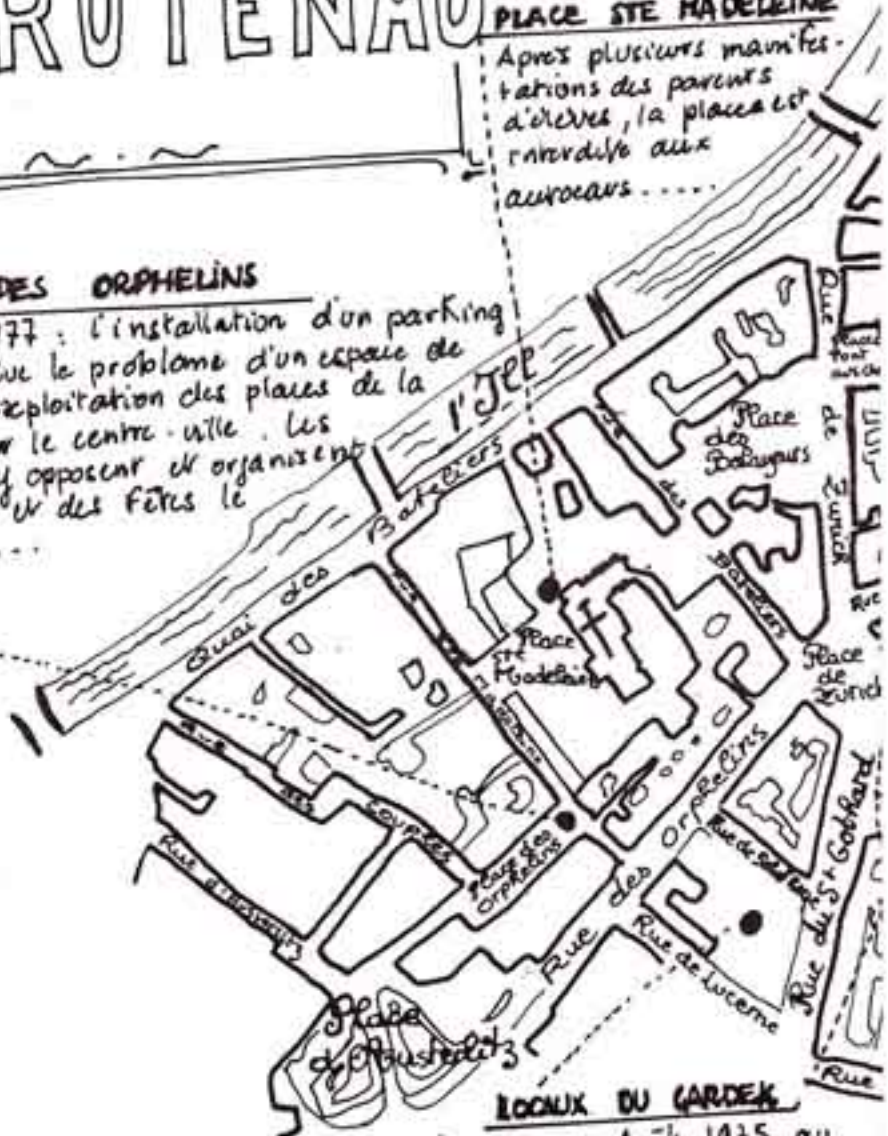 RUTENAU
PLACE STE MADELEINE
Après plusieurs manifes-
tations des parents
d'élèves, la place est
interdite aux
autocars.....
DES ORPHELINS
77 : l'installation d'un parking
le problème d'un espace de
exploitation des places de la
le centre-ville. Les
y opposent et organisent
et des fêtes le
...
l'Ill
Quai des Bateliers
Rue des Bateliers
Place des Balayeurs
Rue de Zurich
Rue
Place de Zurich
Place Ste Madeleine
Rue des Couples
Place des Orphelins
Rue des Orphelins
Rue d'Austerlitz
Place d'Austerlitz
Rue de Lucerne
Rue du St Gothard
Rue
LOCAUX DU GARDEK
1975 au